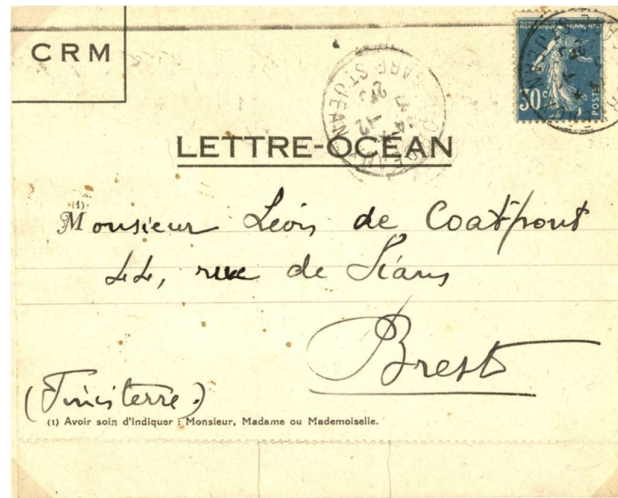 CRM
RÉPUBLIQUE FRANÇAISE
30c
POSTES
GARE ST JEAN
LETTRE-OCÉAN
(1)
Monsieur Léon de Coatpont
44, rue de Siam
Brest
(Finisterre.)
(1) Avoir soin d'indiquer : Monsieur, Madame ou Mademoiselle.